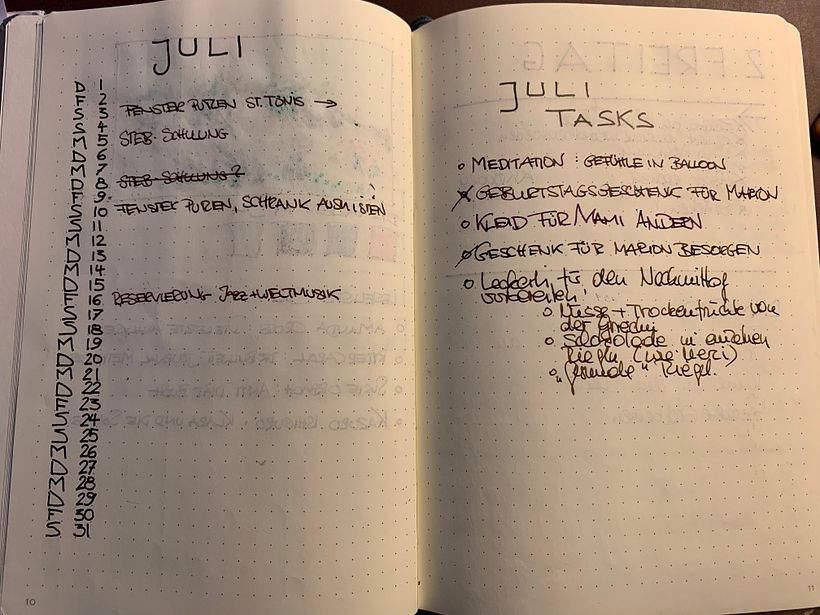 JULI
D 1
F 2
S 3 FENSTER PUTZEN ST. TÖNIS →
S 4
M 5 STEB-SCHULUNG
D 6
M 7
D 8 STEB-SCHULUNG?
F 9
S 10 FENSTER PUTZEN, SCHRANK AUSMISTEN
S 11
M 12
D 13
M 14
D 15
F 16 RESERVIERUNG JAZZ+WELTMUSIK
S 17
S 18
M 19
D 20
M 21
D 22
F 23
S 24
S 25
M 26
D 27
M 28
D 29
F 30
S 31
10
JULI
TASKS
MEDITATION: GEFÜHLE IN BALLON
GEBURTSTAGSGESCHENK FÜR MARION
KLEID FÜR MAMI ÄNDERN
GESCHENK FÜR MARION BESORGEN
Leckerli für den Nachmittag
vorbereiten:
Nüsse + Trockenfrüchte von
der
Schokolade in einzelnen
Riegeln (
"gesunde" Riegel
11